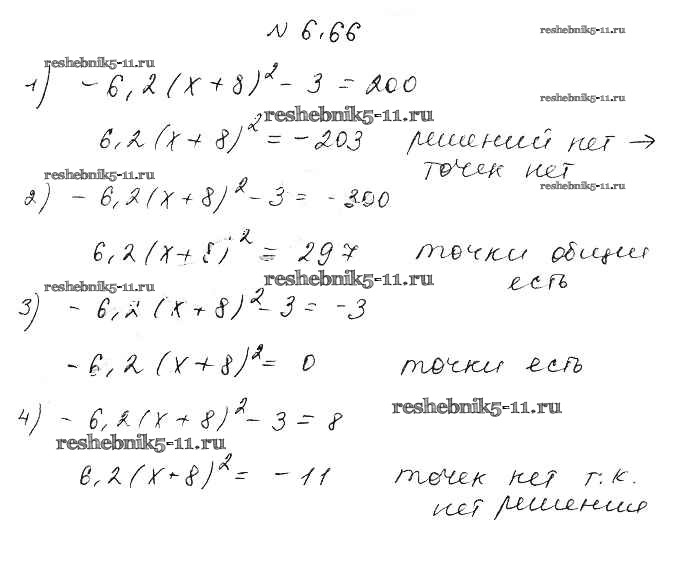 № 6.66
reshebnik5-11.ru
reshebnik5-11.ru
1) - 6,2(x+8)² - 3 = 200
reshebnik5-11.ru
reshebnik5-11.ru
6,2(x+8)² = -203 решений нет →
точек нет
reshebnik5-11.ru
reshebnik5-11.ru
2) - 6,2(x+8)² - 3 = -300
6,2(x+8)² = 297 точки общие
есть
reshebnik5-11.ru
reshebnik5-11.ru
3) - 6,2(x+8)² - 3 = -3
-6,2(x+8)² = 0 точки есть
reshebnik5-11.ru
4) - 6,2(x+8)² - 3 = 8
reshebnik5-11.ru
6,2(x+8)² = -11 точек нет т.к.
нет решения